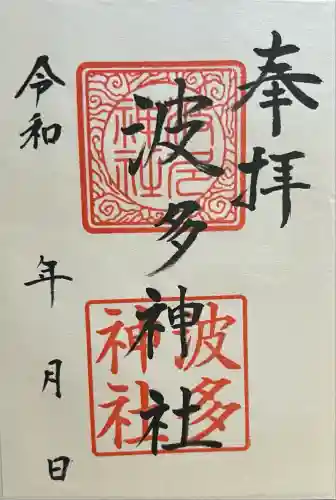 奉拝
波多神社
波多神社
令和 年 月 日